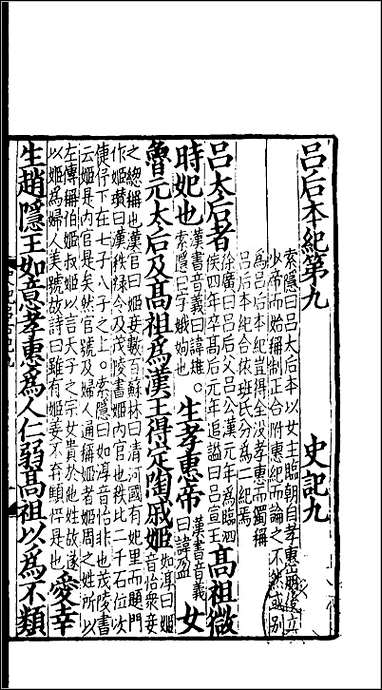 呂后本紀第九　史記九
索隱曰呂太后本以女主臨朝自孝惠崩後立
少帝而始稱制正合附惠紀而論之不然或別
為呂后本紀豈得全没孝惠而獨稱
呂后本紀合依班氏分為二紀焉
呂太后者　徐廣曰呂后父呂公漢元年為臨泗侯四年卒高后元年追謚曰呂宣王　高祖微
時妃也　漢書音義曰諱雉。索隱曰字娥姁也　生孝惠帝　漢書音義曰諱盈　女
魯元太后及高祖為漢王得定陶戚姬　如淳曰姬音怡衆妾
之緫稱也漢官曰姬妾數百蘇林曰清河國有妃里而題門
作姬瓚曰漢秩禄令及茂陵書姬内官也秩比二千石位次
倢伃下在七子八子之上。索隱曰如淳音怡非也茂陵書
云姬是内官是矣然官號及婦人通稱姬者姬周之姓所以
左傳稱伯姬叔姬以言天子之宗女貴於他姓故遂
以姬為婦人美號故詩曰雖有姬姜不弃顦悴是也　愛幸
生趙隱王如意孝惠為人仁弱高祖以為不類